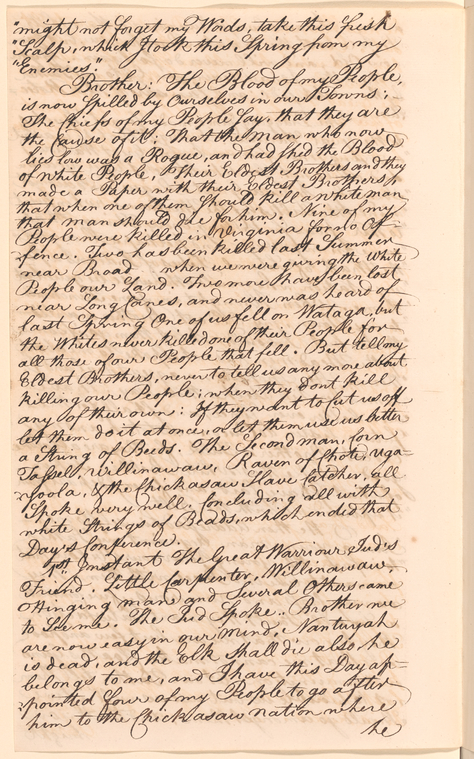 "might not forget my Words, take this fresh
"Scalp, which I took this Spring from my
"Enemies".
Brother: The Blood of my People,
is now Spilled by Ourselves in our Towns;
The Chiefs of my People Say, that they are
the Cause of it: That the Man who now
lies low was a Rogue, and had Shed the Blood
of White People, Their Eldest Brothers and they
made a Paper with their Eldest Brothers,
that when one of them Should kill a White man
that man Should die for him. Nine of my
People were killed in Virginia for no Of=
fence. Two has been killed last Summer
near Broad when we were giving the White
People our Land. Two more have been lost
near Long Canes, and never was heard of
last Spring One of us fell on Wataga, but
the Whites never killed one of their People for
all those of ours People that fell. But tell my
Eldest Brothers, never to tell us any more about
killing our People, when they dont kill
any of their own: If they want to Cut us off
let them do it at once, or let them use us better
a String of Beeds. The Second man, Corn
Tassell, Willinawaw, Raven of Chote, Uga=
=yoola, & the Chickasaw Slave Catcher, all
Spoke very well. Concluding all with
white Strings of Beads, which ended that
Day's Conference.
Instant The Great Warriour, Jud's
Friend, Little Carpenter, Willinawaw,
Stinging man and Several Others came
to See me. The Jud Spoke.. Brother we
are now easy in our mind, Nantuyah
is dead, and the Elk Shall die also, he
belongs to me, and I have this Day ap=
=pointed four of my People to go after
him to the Chickasaw nation where
he